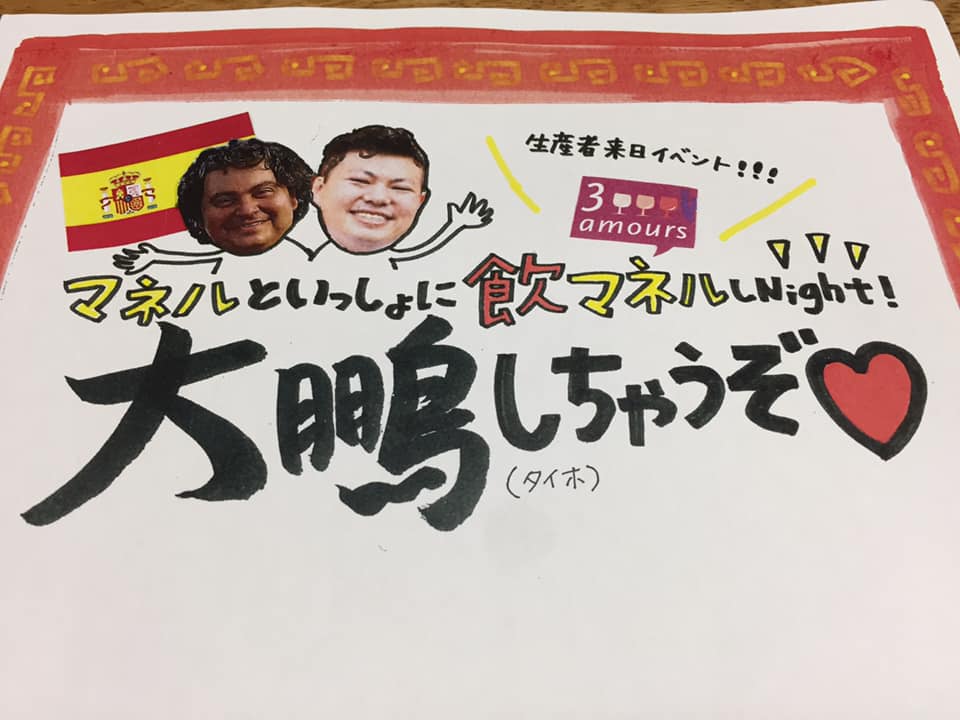 生産者来日イベント!!!
3
amours
マネルといっしょに飲マネルしNight!
大鵬しちゃうぞ
(タイホ)